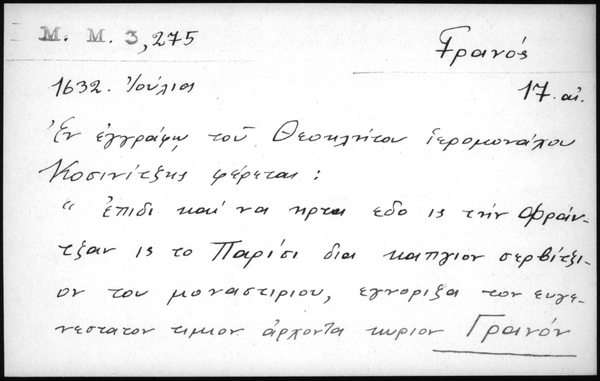 M. M. 3, 275
Γρανός
1632. Ἰούλιος
17. αἰ.
Ἐν ἐγγράφῳ τοῦ Θεοκλήτου ἱερομονάχου
Κοσινίτζης φέρεται:
“ ἐπιδι καί να ηρτα εδο ις τήν Φράν-
τζαν ις το Παρίσι δια καπγιον σερβίτζι-
ον του μοναστιριου, εγνοριξα τον ευγε-
νεστατον τιμιον ἀρχοντα κυριον Γρανόν